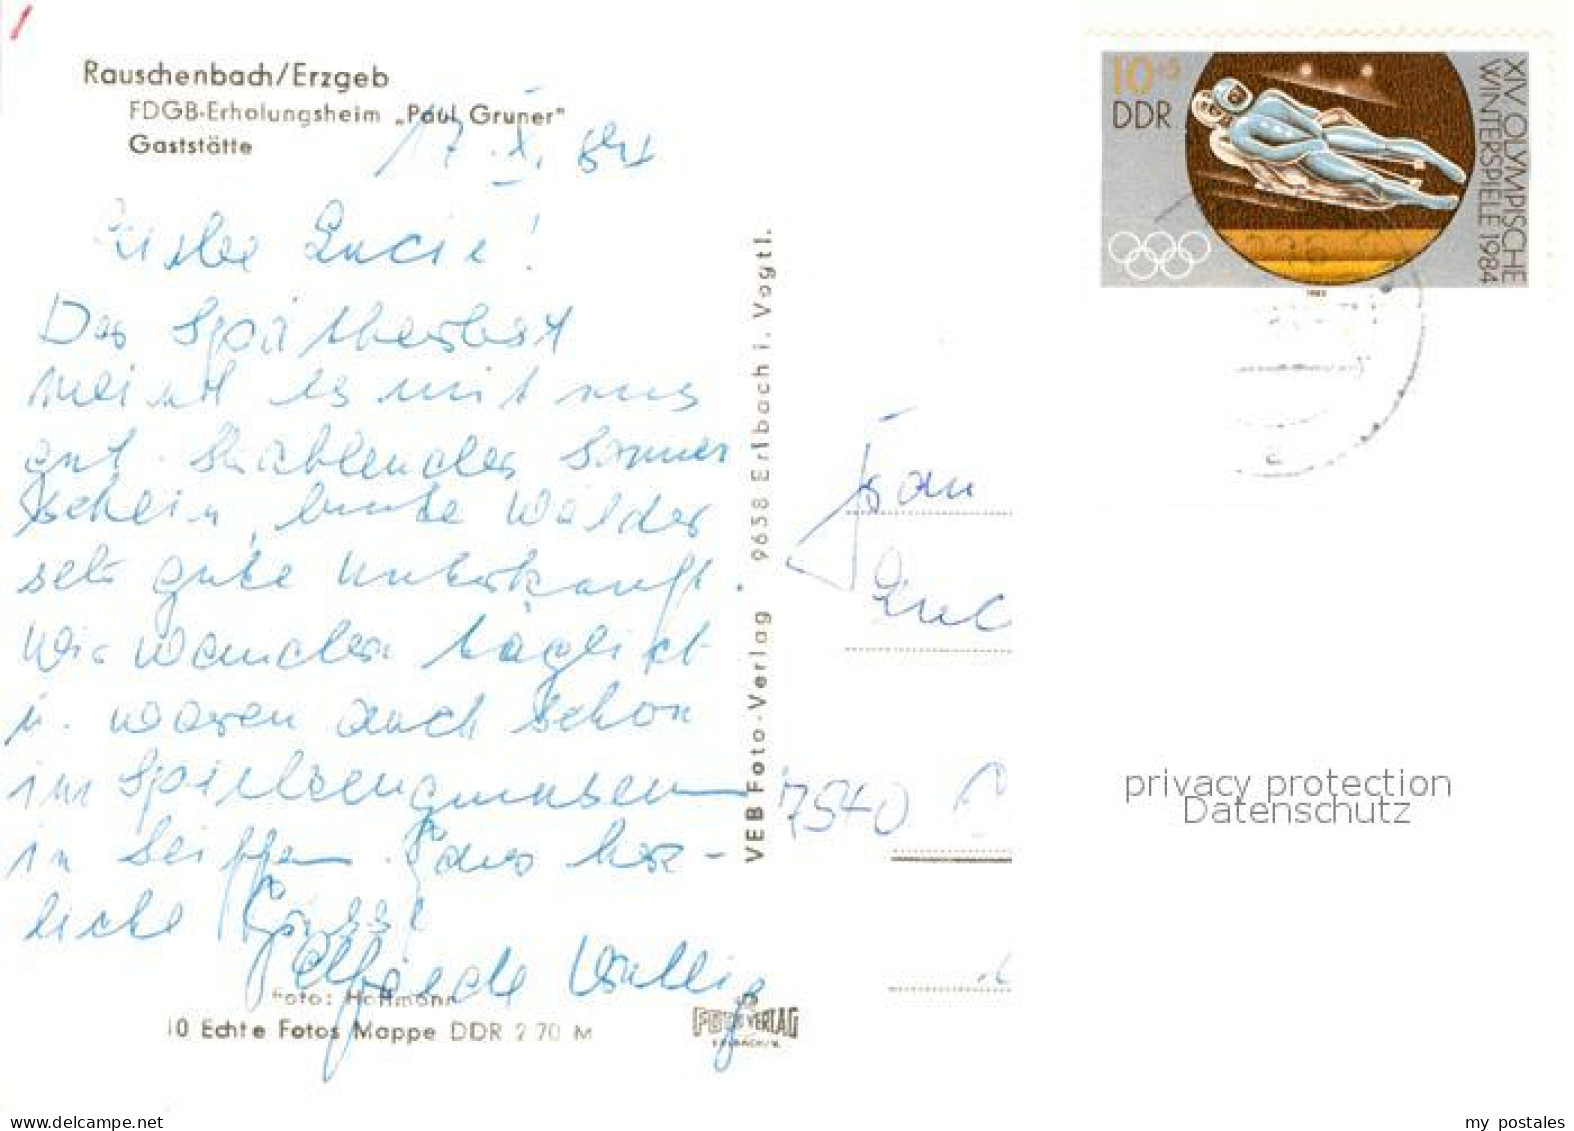 Rauschenbach/Erzgeb
FDGB-Erholungsheim „Paul Gruner"
Gaststätte
17.X.84
Liebe Lucie!
Der Spätherbst
meint es mit uns
gut. Strahlender Sonnen
schein, bunte Wälder
sehr gute Unterkunft.
Wir wandern täglich
u. waren auch schon
im Spielzeugmuseum
in Seiffen. Ganz herz-
liche Grüsse
Elfriede
Foto: Hoffmann
10 Echte Fotos Mappe DDR 2.70 M
VEB Foto-Verlag 9658 Erlbach i. Vogtl.
FOTO VERLAG
ERLBACH/V.
10+5
DDR
XIV OLYMPISCHE
WINTERSPIELE 1984
1983
Frau
Luc
7540 C
privacy protection
Datenschutz
my postales